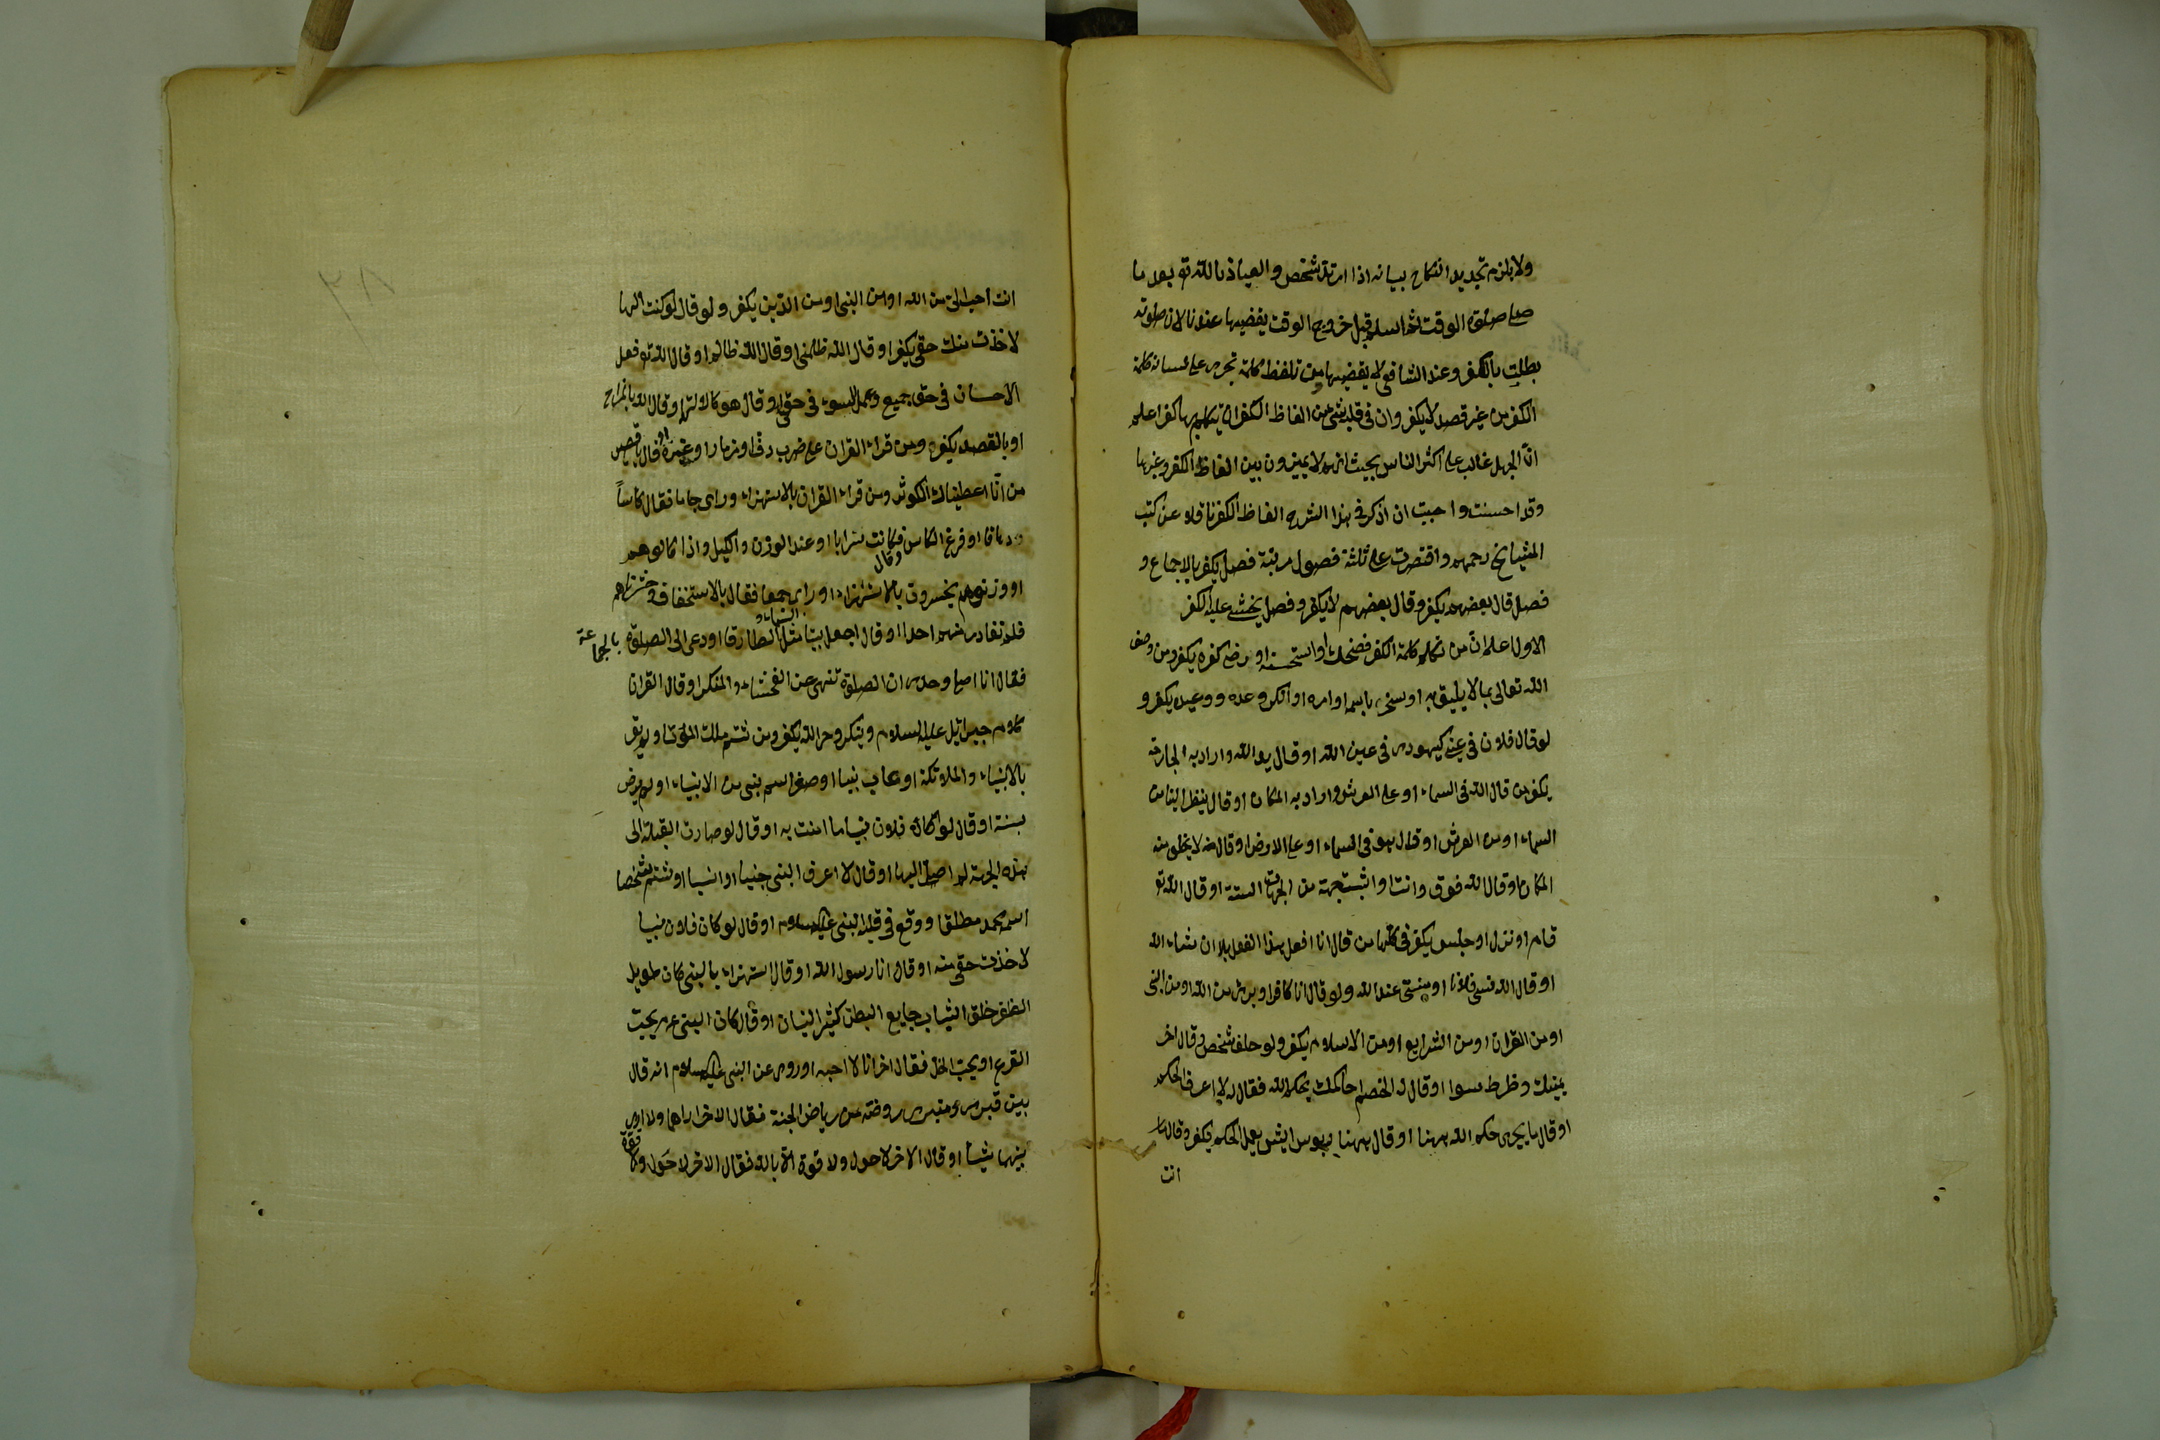 ولا يلزم تجديد النكاح بيانه اذا ارتد شخص والعياذ بالله تع بعد ما
صلى صلوة الوقت ثم اسلم قبل خروج الوقت يقضيها عندنا لان صلوته
بطلت بالكفر وعند الشافعى لا يقضيها من تلفظ كلمة تجرى على لسانه كلمة
الكفر من غير قصد لا يكفر وان فى قلبه شئ من الفاظ الكفر ان يتكلم بها كفر اعلم
ان الجهل غالب على اكثر الناس بحيث انهم لا يميزون بين الفاظ الكفر وغيرها
وقد احسنت واحببت ان اذكر فى هذا الشرح الفاظ الكفر ناقلا عن كتب
المشايخ رحمهم واقتصرت على ثلثة فصول مرتبة فصل يكفر بالاجماع و
فصل قال بعضهم يكفر وقال بعضهم لا يكفر وفصل يخشى عليه الكفر
الاول اعلم ان من تكلم كلمة الكفر فضحك او استحسنه او رضى كفره يكفر ومن وصف
الله تعالى بما لا يليق به او سخر باسم اوامره او انكر وعده ووعيده يكفر و
لو قال فلان فى عينى كيهودى فى عين الله او قال يد الله واراد به الجارحة
يكفر من قال الله فى السماء او على العرش واراد به المكان او قال ينظر الينا من
السماء او من العرش او قال هو فى السماء او على الارض او قال لا يخلو منه
المكان او قال الله فوق وانت او اثبت جهة من الجهات الستة او قال الله تع
قام او نزل او جلس يكفر فى كلها من قال انا افعل هذا الفعل بلا ان شاء الله
او قال الله نسى فلانا او منسى عند الله ولو قال انا كافر او برئ من الله او من النبى
او من القران او من الشرايع او من الاسلام يكفر ولو حلف شخص وقال اخر
يمينك وظرط سوا او قال له الخصم احاكمك بحكم الله فقال له لا اعرف الحكم
او قال ما يجرى حكم الله ههنا او قال ههنا ايش يعمل الحكم يكفر وقال
انت
انت احب الى من الله او من النبى او من الدين يكفر ولو قال لو كنت الها
لاخذت منك حقى يكفر او قال الله ظلمنى او قال الله ظالم او قال الله تع فعل
الاحسان فى حق جميع وعمل السوء فى حقى او قال هو كالآلهة او قال الله بالمزاح
او بالقصد يكفر ومن قراء القران على ضرب دف او مزمار او غيره او قال
من انا اعطيناك الكوثر ومن قراء القران بالاستهزاء وراى جاما فقال كاسا
دهاقا او فرغ الكاس وقال فكانت سرابا او عند الوزن والكيل واذا كالوهم
او وزنوهم يخسرون بالاستهزاء او راى جمعا فقال بالاستخفاف وحشرناهم
فلم نغادر منهم احدا او قال اجعل بيتا مثل السماء والطارق او دعى الى الصلوة بالجماعة
فقال انا اصلى وحدى ان الصلوة تنهى عن الفحشاء والمنكر او قال القران
كلام جبرائيل عليه السلام وينكر وحى الله يكفر ومن شتم ملك الموت او لم يقر
بالانبياء والملائكة او عاب نبيا او صغر اسم نبى من الانبياء او لم يرض
بسنة او قال لو كان فلان نبيا ما امنت به او قال لو صارت القبلة الى
هذه الجهة لم اصل اليها او قال لا اعرف النبى جنيا او انسيا او شتم شخصا
اسمه محمد مطلقا ووقع فى قلبه النبى عليه السلام او قال لو كان فلان نبيا
لاخذت حقى منه او قال انا رسول الله او قال استهزاء بالنبى كان طويل
الظفر خلق الثياب جايع البطن كثير النسيان او قال كان النبى عم يحب
القرع او يحب الخل فقال اخر انا لا احبه او روى عن النبى عليه السلام انه قال
بين قبرى ومنبرى روضة من رياض الجنة فقال الاخر اراهما ولا ارى
بينهما شيا او قال الاخر لا حول ولا قوة الا بالله فقال الاخر لا حول ولا قوة